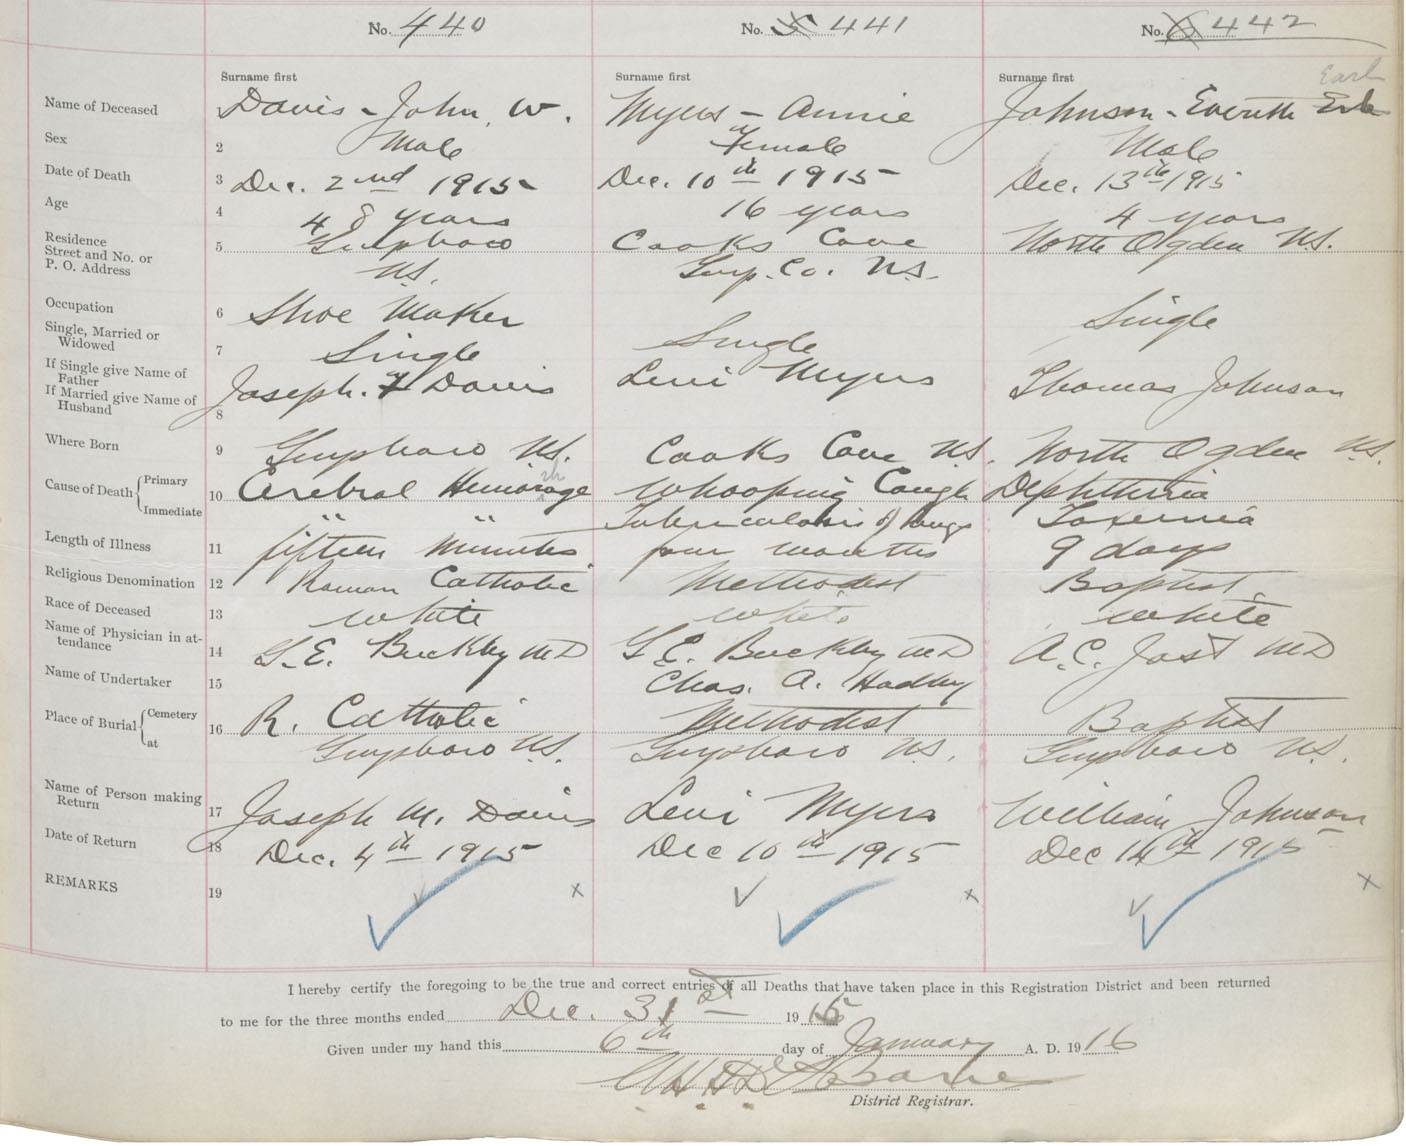 No. 440 No. 441 No. 442
Surname first Surname first Surname first Earl
Name of Deceased Davis - John. W. Myers - Annie Johnson - Everith
Sex 2 Male Female Male
Date of Death 3 Dec. 2nd 1915 Dec. 10th 1915 Dec. 13th 1915
Age 4 48 years 16 years 4 years
Residence
Street and No. or 5 Guysboro Cooks Cove North Ogden N.S.
P. O. Address N.S. Guys. Co. N.S.
Occupation 6 Shoe Maker Single
Single, Married or
Widowed 7 Single Single
If Single give Name of
Father Joseph. Davis Levi Myers Thomas Johnson
If Married give Name of
Husband 8
Where Born 9 Guysboro N.S. Cooks Cove N.S. North Ogden N.S.
Cause of Death Primary 10 Cerebral Hemorage Whooping Cough Diphtheria
Immediate " " Tuberculosis of lungs Toxemia
Length of Illness 11 fifteen minutes four months 9 days
Religious Denomination 12 Roman Catholic Methodist Baptist
Race of Deceased 13 White White White
Name of Physician in at-
tendance 14 G. E. Buckley MD G E. Buckley MD A. C. Jost MD
Name of Undertaker 15 Chas. A. Hadley
Place of Burial Cemetery 16 R. Catholic Methodist Baptist
at Guysboro N.S. Guysboro N.S. Guysboro N.S.
Name of Person making
Return 17 Joseph M. Davis Levi Myers William Johnson
Date of Return 18 Dec. 4th 1915 Dec 10th 1915 Dec 14th 1915
REMARKS 19 x x x
I hereby certify the foregoing to be the true and correct entries of all Deaths that have taken place in this Registration District and been returned
to me for the three months ended Dec. 31st 1915
Given under my hand this 6th day of January A. D. 1916
District Registrar.